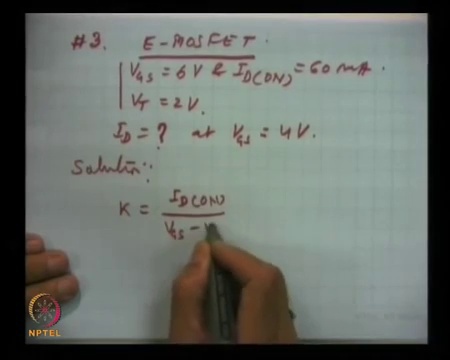 #3. E-MOSFET.
V_GS = 6V & I_D(ON) = 60 mA.
V_T = 2V.
I_D = ? at V_GS = 4V.
Solution:
K = I_D(ON)
V_GS -
NPTEL